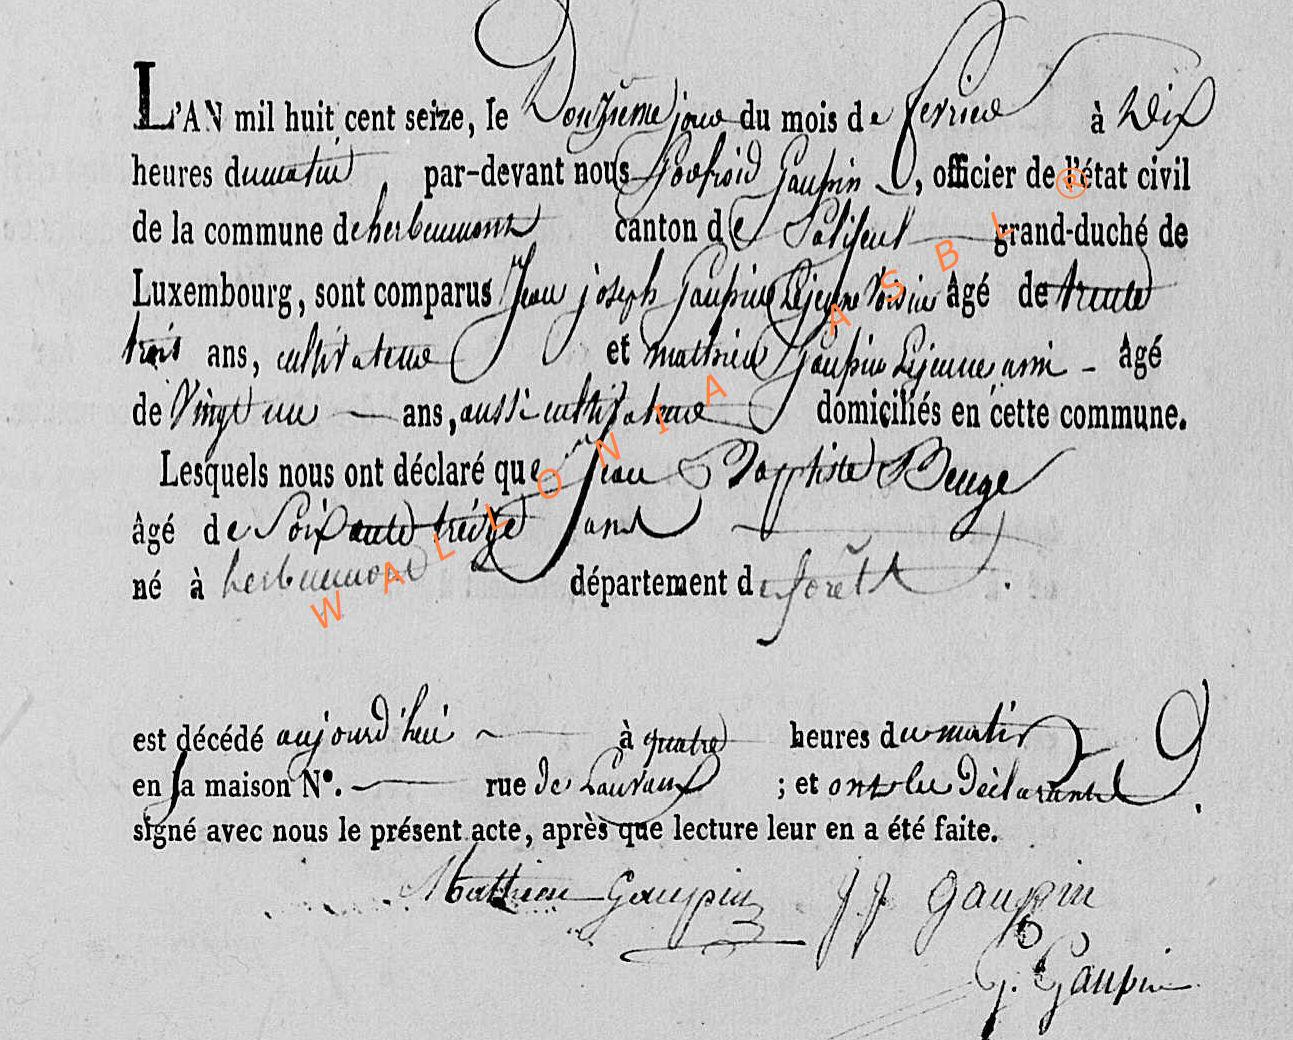 L'AN mil huit cent seize, le Douzieme jour du mois de fevrier à Dix
heures du matin par-devant nous Godfroid Gaupin, officier de l'état civil
de la commune de herbeumont canton de Paliseul grand-duché de
Luxembourg, sont comparus Jean joseph Gaupin Lejeune Voisin âgé de trente
trois ans, cultivateur et mathieu Gaupin Lejeune ami - âgé
de Vingt un ans, aussi cultivateur domiciliés en cette commune.
Lesquels nous ont déclaré que Jean Baptiste Beuge
âgé de Soixante treize ans
né à herbeumont département de forêts.
est décédé aujourd'hui à quatre heures du matin
en sa maison N°. rue de Lauvaux ; et ont les Déclarants
signé avec nous le présent acte, après que lecture leur en a été faite.
Mathieu Gaupin JJ Gaupin
G. Gaupin
WALLONIA ASBL ®